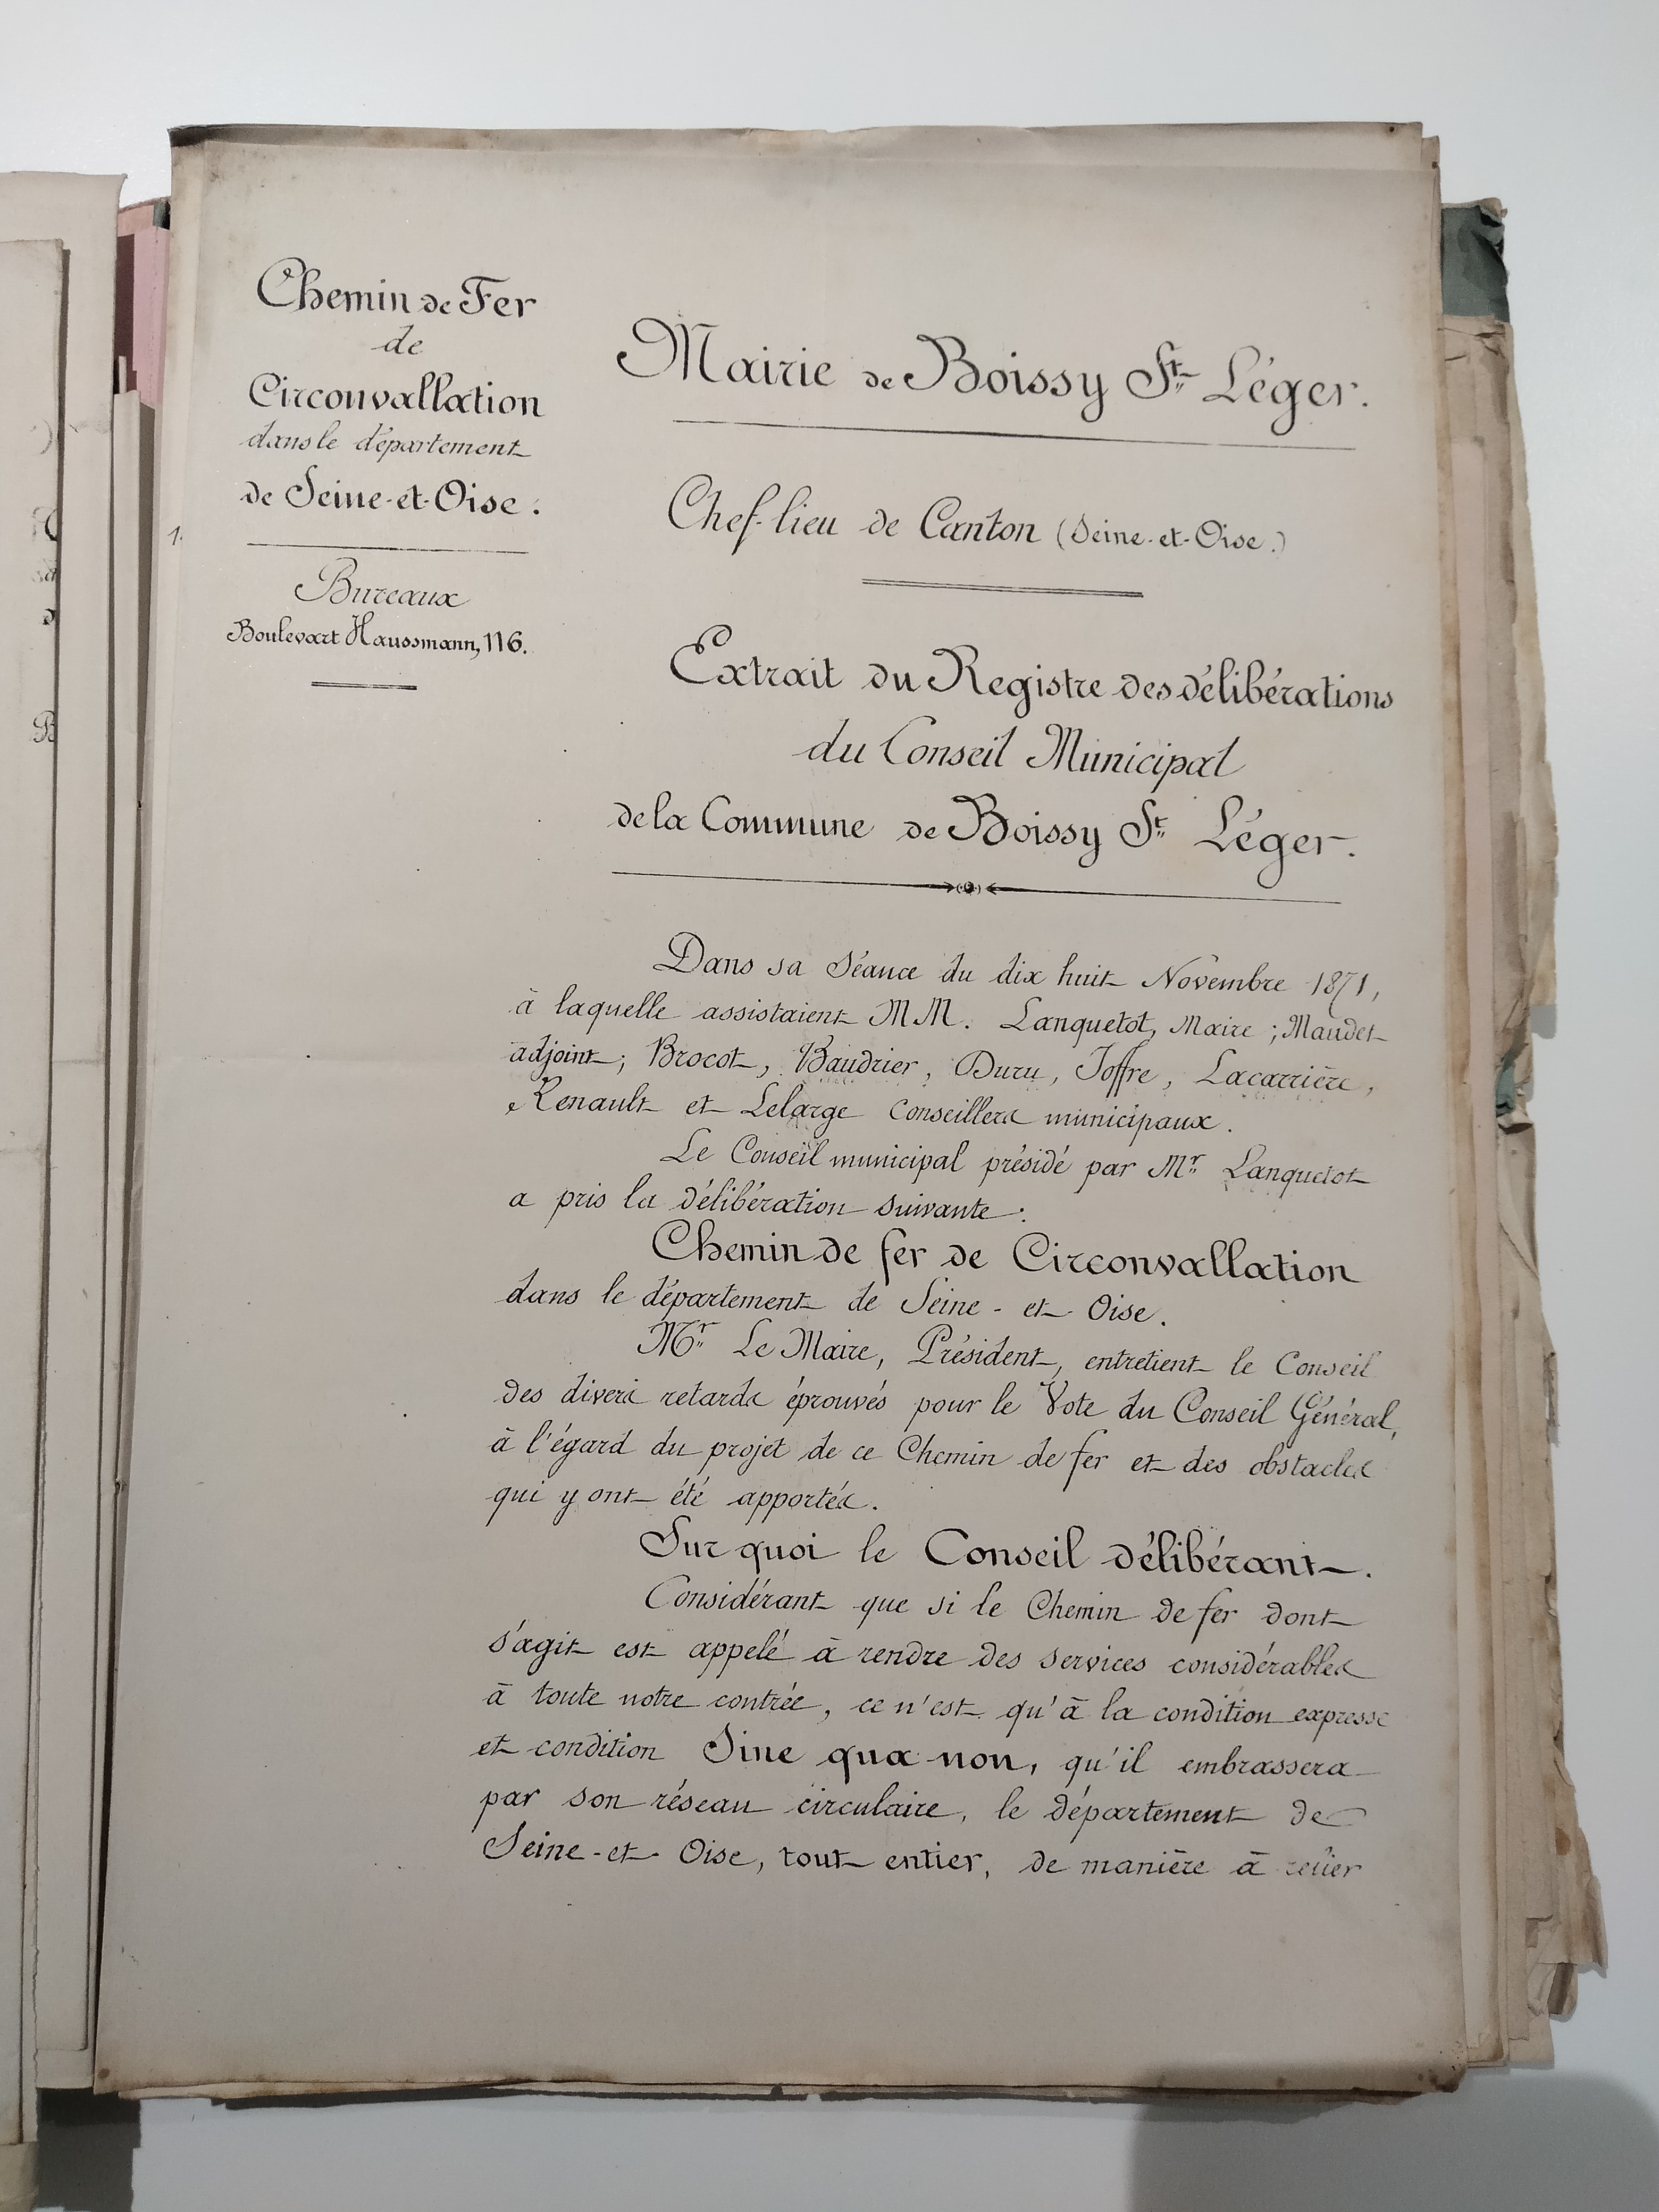 Chemin de Fer
de
Circonvallation
dans le département
de Seine-et-Oise.
Bureaux
Boulevart Haussmann, 116.
Mairie de Boissy St. Léger.
Chef-lieu de Canton (Seine-et-Oise.)
Extrait du Registre des délibérations
du Conseil Municipal
de la Commune de Boissy St. Léger.
Dans sa Séance du dix huit Novembre 1871,
à laquelle assistaient MM. Lanquetot, Maire ; Maudet
adjoint ; Brocot, Baudrier, Duru, Joffre, Lacarrière,
Renault et Lelarge Conseillers municipaux.
Le Conseil municipal présidé par Mr. Lanquetot
a pris la délibération suivante :
Chemin de fer de Circonvallation
dans le département de Seine-et-Oise.
Mr. Le Maire, Président, entretient le Conseil
des divers retards éprouvés pour le Vote du Conseil Général,
à l'égard du projet de ce Chemin de fer et des obstacles
qui y ont été apportés.
Sur quoi le Conseil délibérant.
Considérant que si le Chemin de fer dont
s'agit est appelé à rendre des services considérables
à toute notre contrée, ce n'est qu'à la condition expresse
et condition Sine qua non, qu'il embrassera
par son réseau circulaire, le département de
Seine-et-Oise, tout entier, de manière à relier